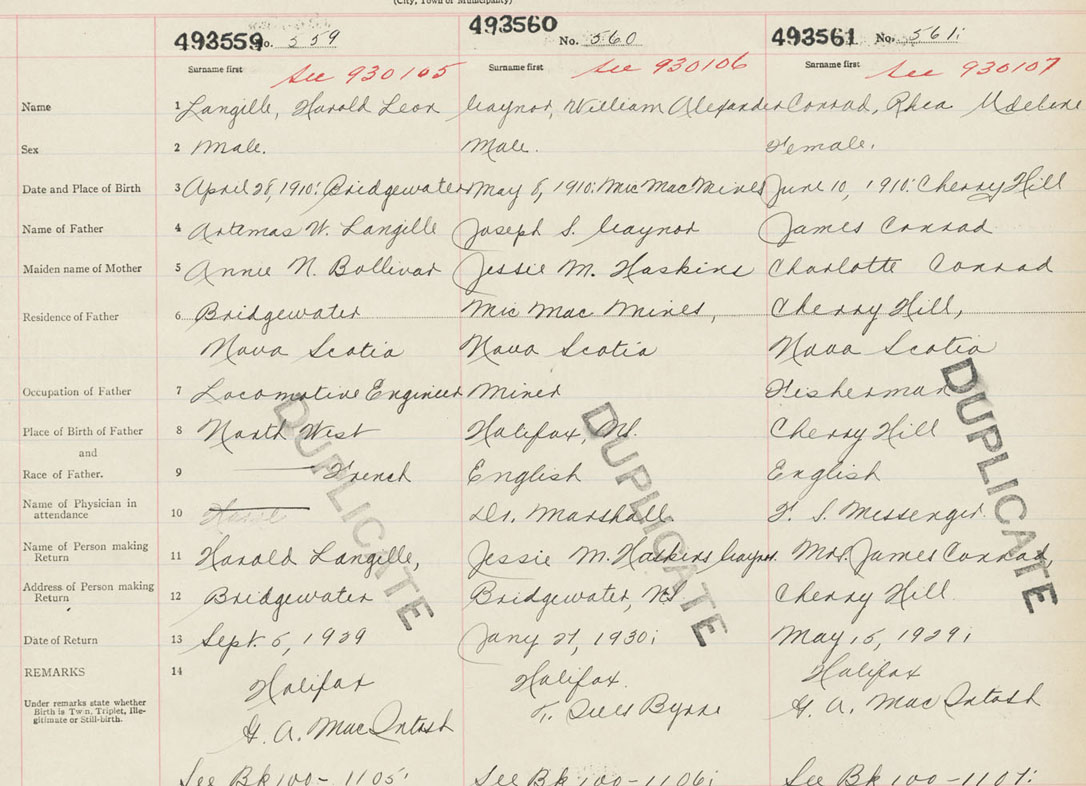 (City, Town or Municipality)
493559 No. 559 493560 No. 560 493561 No. 561
Surname first See 930105 Surname first See 930106 Surname first See 930107
Name 1 Langille, Harold Leon Gaynor, William Alexander Conrad, Rhea Adeline
Sex 2 Male. Male. Female.
Date and Place of Birth 3 April 28, 1910: Bridgewater May 8, 1910: Mic Mac Mines June 10, 1910: Cherry Hill
Name of Father 4 Artemas W. Langille Joseph S. Gaynor James Conrad
Maiden name of Mother 5 Annie N. Bollivar Jessie M. Haskins Charlotte Conrad
Residence of Father 6 Bridgewater Mic Mac Mines, Cherry Hill,
Nova Scotia Nova Scotia Nova Scotia
Occupation of Father 7 Locomotive Engineer Miner Fisherman
Place of Birth of Father 8 North West Halifax, N.S. Cherry Hill
and
Race of Father. 9 French English English
Name of Physician in
attendance 10 Dr. Marshall F. S. Messenger.
Name of Person making
Return 11 Harold Langille, Jessie M. Haskins Gaynor. Mrs. James Conrad,
Address of Person making
Return 12 Bridgewater Bridgewater, NS Cherry Hill.
Date of Return 13 Sept. 5, 1929 Jany 27, 1930; May 15, 1929;
REMARKS 14 Halifax Halifax. Halifax
Under remarks state whether
Birth is Twin, Triplet, Ille-
gitimate or Still-birth.
G. A. MacIntosh T. Byrne G. A. MacIntosh
See Bk 100-1105; See Bk 100-1106; See Bk 100-1107;
DUPLICATE DUPLICATE DUPLICATE